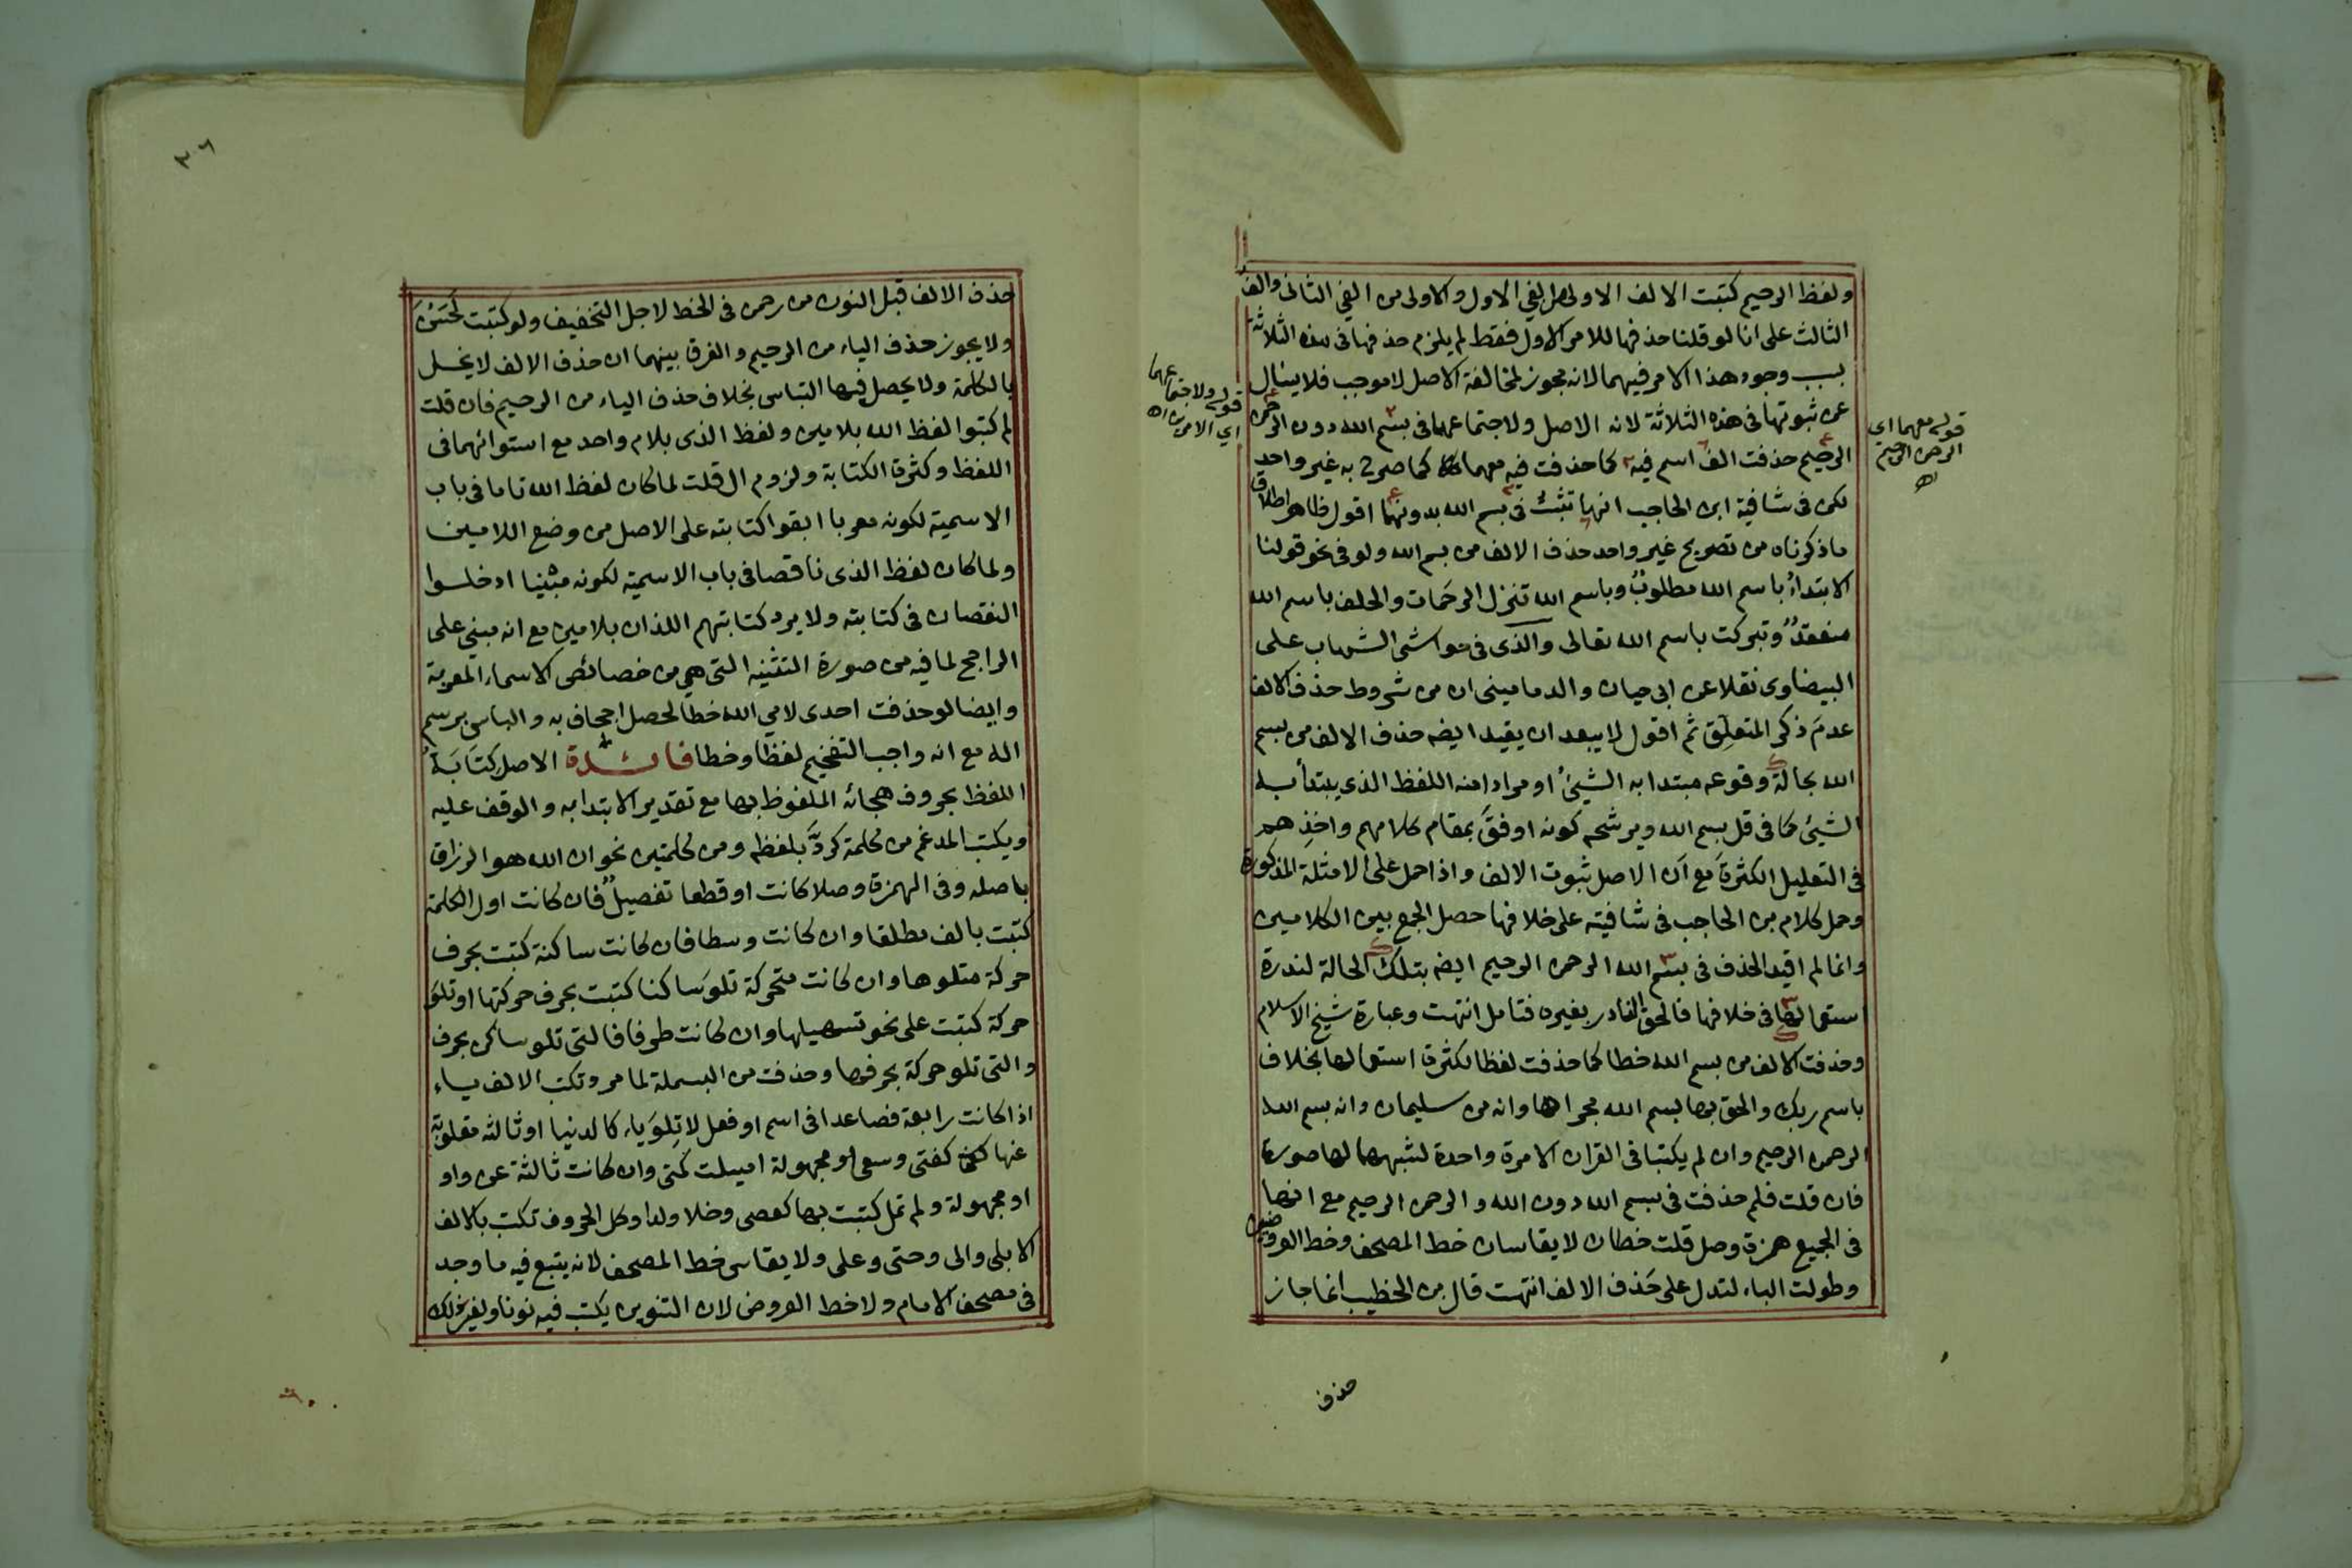 ولفظ الرحيم كتبت الالف الاولى من الفي الاول والاولى من الفي الثانى والف
الثالث على انا لو قلنا حذفها للامر الاول فقط لم يلزم حذفها فى هذه الثلاثة
بسبب وجود هذا الامر فيهما لانه مجوز لمخالفة الاصل لا موجب فلا يسال
عن ثبوتها فى هذه الثلاثة لانه الاصل ولاجتماعهما فى بسم الله دون الرحمن
الرحيم حذفت الف اسم فيه كما حذفت فيه معهما كما صرح به غير واحد
لكن فى شافية ابن الحاجب انها تثبت فى بسم الله بدونهما اقول ظاهر اطلاق
ما ذكرناه من تصريح غير واحد حذف الالف من بسم الله ولو فى نحو قولنا
الابتداءُ باسم الله مطلوبٌ وباسم الله تنزل الرحمات والحلف باسم الله
منعقدٌ وتبركت باسم الله تعالى والذى فى حواشى الشهاب على
البيضاوى نقلا عن ابى حيان والدمامينى ان من شروط حذف الالف
عدمَ ذكر المتعلِق ثم اقول لا يبعد ان يقيد ايضه حذف الالف من بسم
الله بحالة وقوعه مبتدا به الشيئُ او مرادا منه اللفظ الذى يبتدأ به
الشيئ كما فى قل بسم الله ويرشحه كونه اوفقَ بمقام كلامهم واخذِهم
فى التعليل الكثرةَ مع ان الاصل ثبوت الالف واذا حمل على الامثلة المذكورة
وحمل كلام بن الحاجب فى شافيته على خلافها حصل الجمع بين الكلامين
وانما لم اقيد الحذف فى بسم الله الرحمن الرحيم ايضه بتلك الحالة لندرة
استعمالها فى خلافها فالحق النادر بغيره فتامل انتهت وعبارة شيخ الاسلام
وحذفت الالف من بسم الله خطا كما حذفت لفظا لكثرة استعمالها بخلاف
باسم ربك والحق بها بسم الله مجراها وانه من سليمان وانه بسم الله
الرحمن الرحيم وان لم يكتبا فى القران الا مرة واحدة لشبههما لها صورة
فان قلت فلم حذفت فى بسم الله دون الله والرحمن الرحيم مع انها
فى الجميع همزة وصل قلت خطان لا يقاسان خط المصحف وخط العروضيين
وطولت الباء لتدل على حَذف الالف انتهت قال بن الخطيب انما جاز
قوله معهما اي
الرحمن الرحيم
اه
قوله ولاجتماعهما
اي الامرين اه
حذف
٣٦
حذف الالف قبل النون من رحمن فى الخط لاجل التخفيف ولو كتبت لحسن
ولا يجوز حذف الياء من الرحيم والفرق بينهما ان حذف الالف لا يخل
بالكلمة ولا يحصل فيها التباس بخلاف حذف الياء من الرحيم فان قلت
لم كتبوا لفظ الله بلامين ولفظ الذى بلام واحد مع استوائهما فى
اللفظ وكثرة الكتابة ولزوم ال قلت لما كان لفظ الله تاما فى باب
الاسمية لكونه معربا ابقوا كتابته على الاصل من وضع اللامين
ولما كان لفظ الذى ناقصا فى باب الاسمية لكونه مبنيا ادخلوا
النقصان فى كتابته ولا يرد كتابتهم اللذان بلامين مع انه مبني على
الراجح لما فيه من صورة التثنيه التى هي من خصائص الاسماء المعربة
وايضا لو حذفت احدى لامي الله خطا لحصل اجحاف به والباس برسم
اله مع انه واجب التفخيم لفظا وخطا فائدة الاصل كتابة
اللفظ بحروف هجائه الملفوظ بها مع تقدير الابتدا به والوقف عليه
ويكتب المدغم من كلمة كردَّ بلفظه ومن كلمتين نحو ان الله هو الرزاق
باصله وفى الهمزة وصلا كانت او قطعا تفصيلٌ فان كانت اول الكلمة
كتبت بالف مطلقا وان كانت وسطا فان كانت ساكنة كتبت بحرف
حركة متلوها وان كانت متحركة تلوَ ساكنا كتبت بحرف حركتها او تلوَ
حركة كتبت على نحو تسهيلها وان كانت طرفا فالتى تلو ساكن بحرف
والتى تلو حركة بحرفها وحذفت من البسملة لما مر وتكتب الالف ياء
اذا كانت رابعة فصاعدا فى اسم او فعل لا تِلوَ ياء كالدنيا او ثالثه مقلوبة
عنها كفتى وسعى او مجهولة اميلت كمتى وان كانت ثالثة عن واو
او مجهولة ولم تمل كتبت بها كعصى وخلا ولدا وكل الحروف تكتب بالالف
الا بلى والى وحتى وعلى ولا يقاس خط المصحف لانه يتبع فيه ما وجد
فى مصحف الامام ولا خط العروض لان التنوين يكتب فيه نونا ولغير ذلك